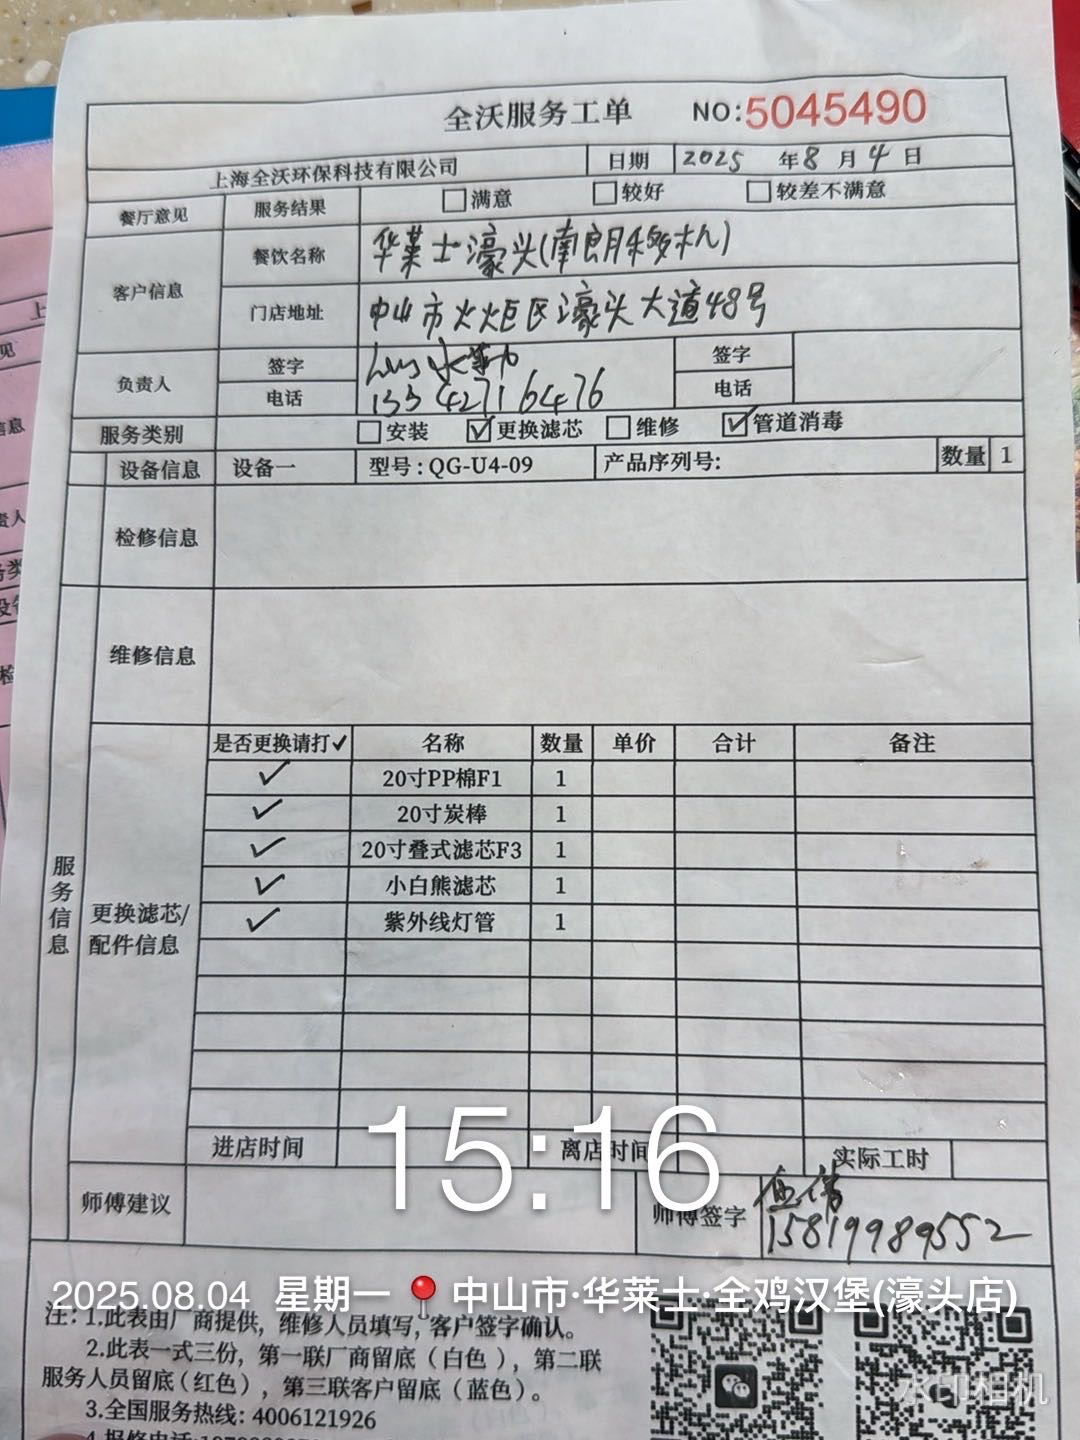 全沃服务工单 NO:5045490
上海全沃环保科技有限公司 日期 2025 年 8 月 4 日
餐厅意见 服务结果 满意 较好 较差不满意
客户信息 餐饮名称 华莱士濠头(南朗移机)
门店地址 中山市火炬区濠头大道48号
负责人 签字 签字
电话 13342716476 电话
服务类别 安装 ✓更换滤芯 维修 ✓管道消毒
设备信息 设备一 型号:QG-U4-09 产品序列号: 数量 1
检修信息
维修信息
服务信息
更换滤芯/配件信息
是否更换请打✓ 名称 数量 单价 合计 备注
✓ 20寸PP棉F1 1
✓ 20寸炭棒 1
✓ 20寸叠式滤芯F3 1
✓ 小白熊滤芯 1
✓ 紫外线灯管 1
进店时间 离店时间 实际工时
15:16
师傅建议 师傅签字
15819989552
2025.08.04 星期一 中山市·华莱士·全鸡汉堡(濠头店)
注:1.此表由厂商提供,维修人员填写,客户签字确认。
2.此表一式三份,第一联厂商留底(白色),第二联
服务人员留底(红色),第三联客户留底(蓝色)。
3.全国服务热线:4006121926
水印相机